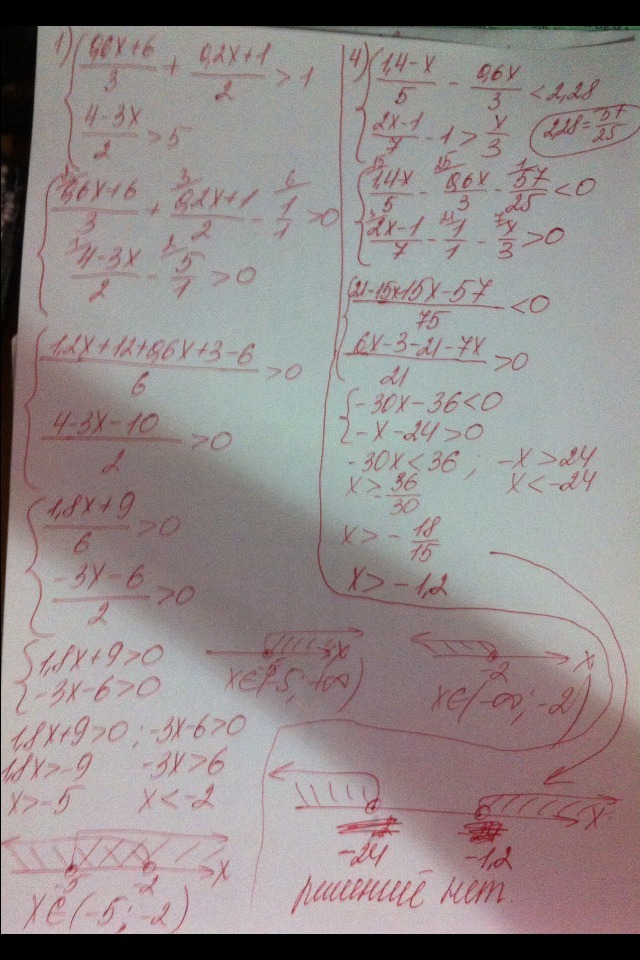 1) { (0,6x+6)/3 + (0,2x+1)/2 > 1
(4-3x)/2 > 5
{ (0,6x+6)/3 + (0,2x+1)/2 - 1/1 > 0
(4-3x)/2 - 5/1 > 0
{ (1,2x+12+0,6x+3-6)/6 > 0
(4-3x-10)/2 > 0
{ (1,8x+9)/6 > 0
(-3x-6)/2 > 0
{ 1,8x+9>0
-3x-6>0
1,8x+9>0 ; -3x-6>0
1,8x>-9 -3x>6
x>-5 x<-2
-5 -2 x
x∈(-5; -2)
-5 x
x∈(-5; +∞)
-2 x
x∈(-∞; -2)
4) { (1,4-x)/5 - 0,6x/3 < 2,28
(2x-1)/7 - 1 > x/3
2,28 = 57/25
{ (1,4-x)/5 - 0,6x/3 - 57/25 < 0
(2x-1)/7 - 1/1 - x/3 > 0
{ (21-15x-15x-57)/75 < 0
(6x-3-21-7x)/21 > 0
{ -30x-36<0
-x-24>0
-30x<36 ; -x>24
x > - 36/30 x<-24
x > - 18/15
x > -1,2
-24 -1,2 x
решений нет